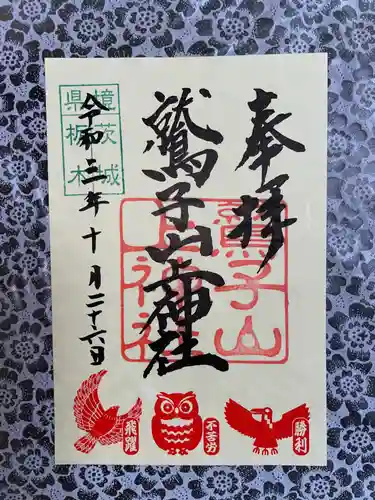 奉拝
鷲子山上神社
令和三年十月二十六日
境茨城
県栃木
鷲子山
上神社
飛躍
不苦労
勝利